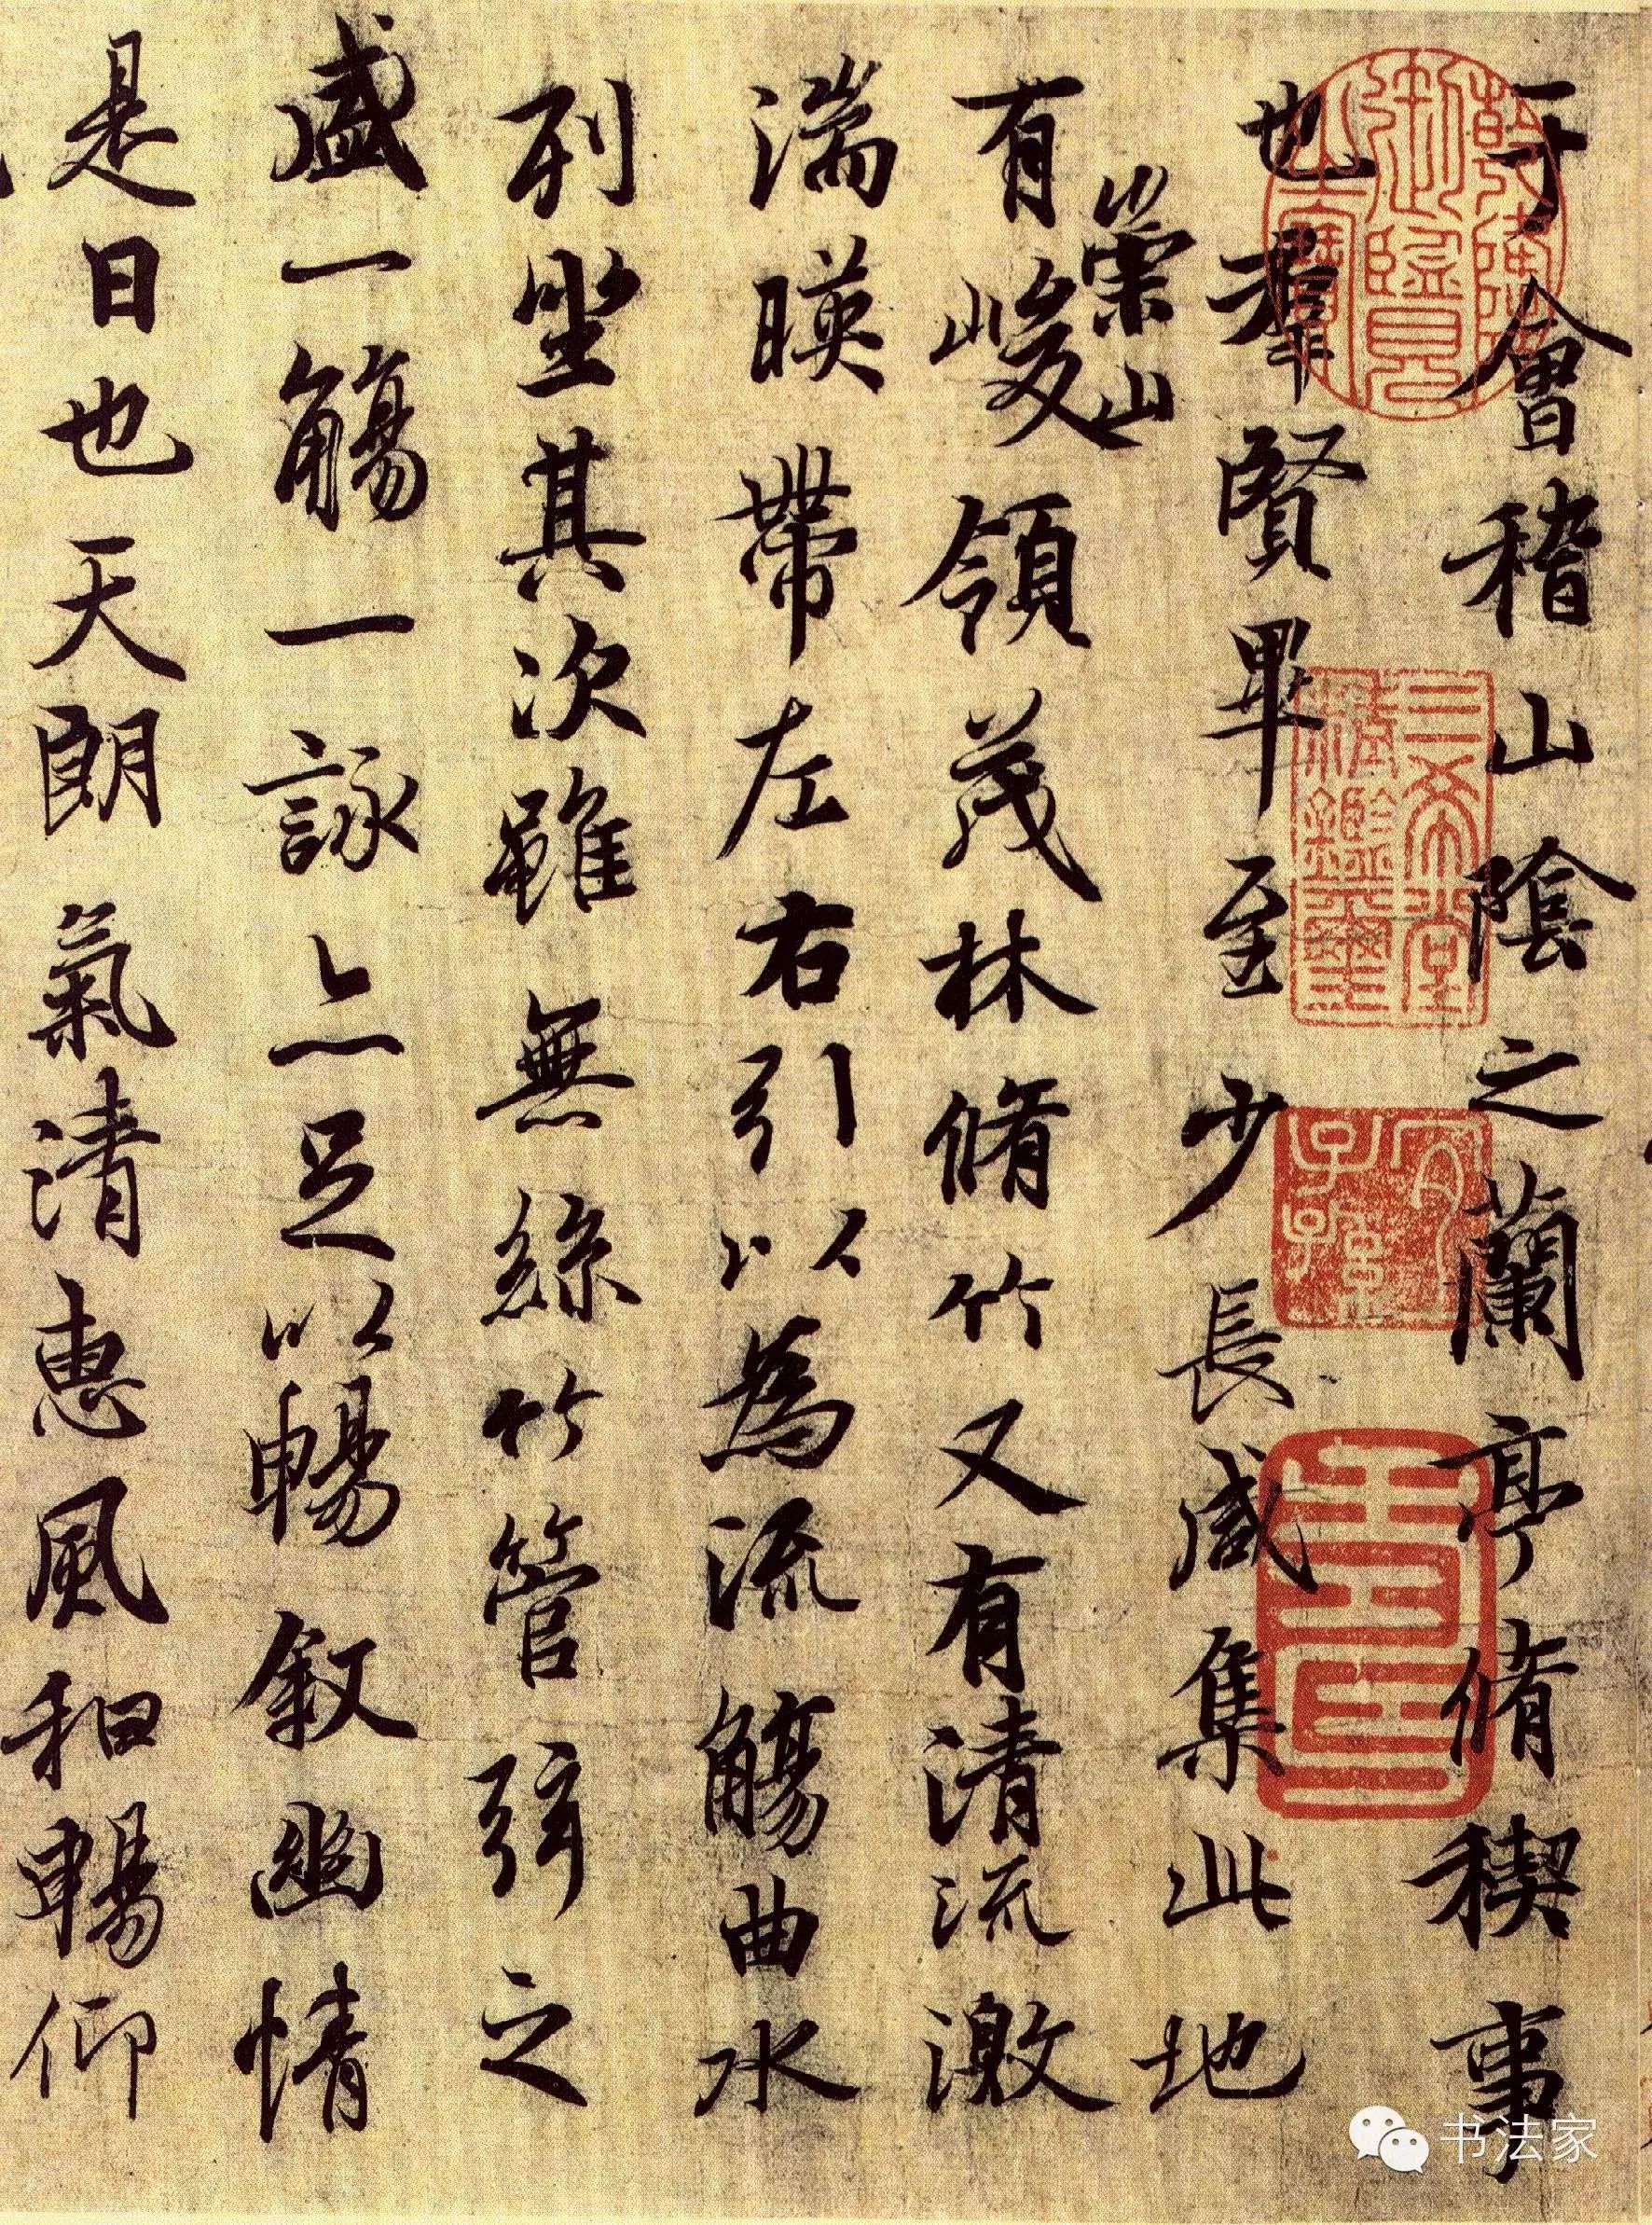 于會稽山陰之蘭亭脩稧事
也羣賢畢至少長咸集此地
有崇山峻領茂林脩竹又有清流激
湍暎帶左右引以為流觴曲水
列坐其次雖無絲竹管弦之
盛一觴一詠亦足以暢敘幽情
是日也天朗氣清惠風和暢仰
三希堂精鑑璽
宜子孫
书法家